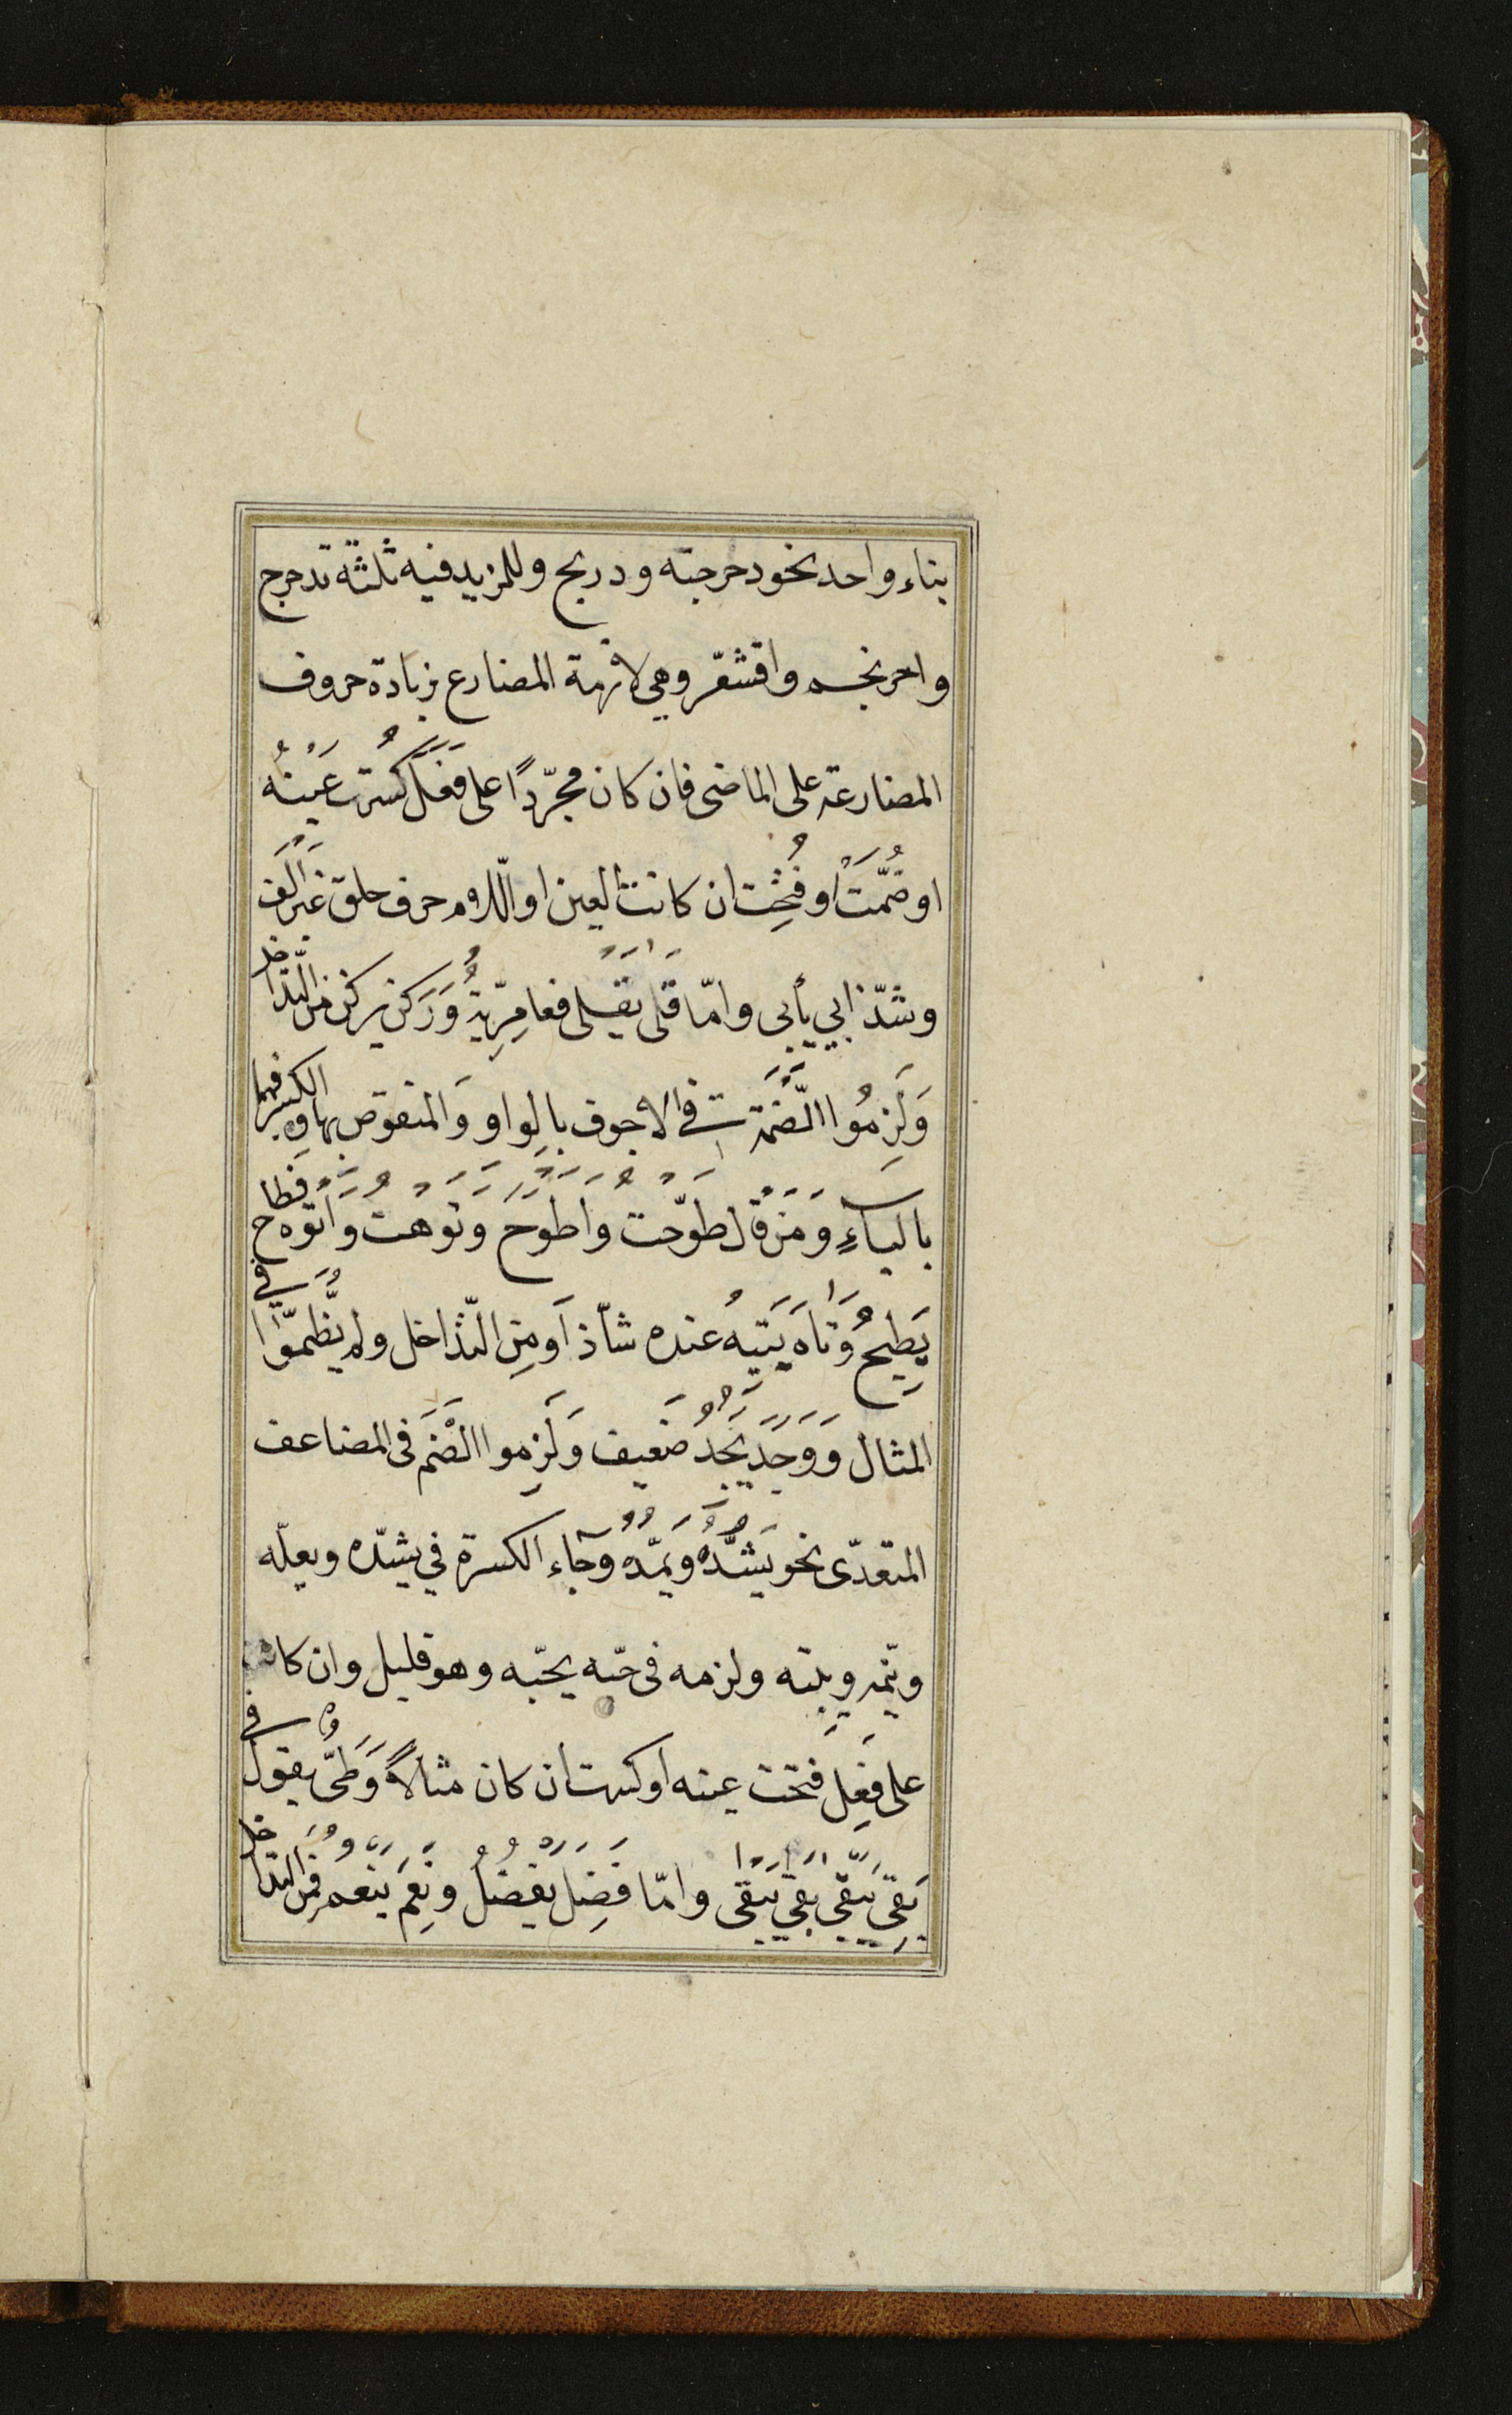 بناء واحد نحو دحرجته و دربخ وللمزيد فيه ثلثة تدحرج
واحرنجم واقشعّر وهى لازمة المضارع بزيادة حروف
المضارعة على الماضى فان كان مجرّدًا على فَعَلَ كُسرت عَينُه
او ضُمَّتْ او فُتِحَت ان كانت العين او اللّام حرف حلق غَيرَ اَلف
وشذّ ابي يأبى وامّا قَلى يقلى فعامِرِّيةُ ورَكَن يركن من التّداخل
وَلَزِمُوا الضّمة في الاجوف بالواو وَالمنقوص بها والكسر فيهما
بالياءِ وَمَن قال طوّحت واَطوَح وتوهت واَتوَه فطاح
يَطِيحُ وَتاهَ يَتيهُ عنده شاّذ اَو مِن التّداخل ولم يضُّموا في
المثال وَوَجَدَ يَجُدُ ضَعيف وَلَزِموا الضَّمَ فى المضاعف
المتعدّى نحو يَشُدُّهُ ويَمُدُّه وجَآء الكسرة في يشدّه ويعلّه
وينّمه ويبته ولزمه فى حبّه يحبّه وهو قليل وان كان
على فَعِلَ فتحت عينه او كسرت ان كان مثالًا وَطَىُّ يقول في
بَقِىَ يَبقى بَقى يَبقى وامّا فَضِلَ يَفضُلُ ونَعِمَ ينعُم فمن التداخل